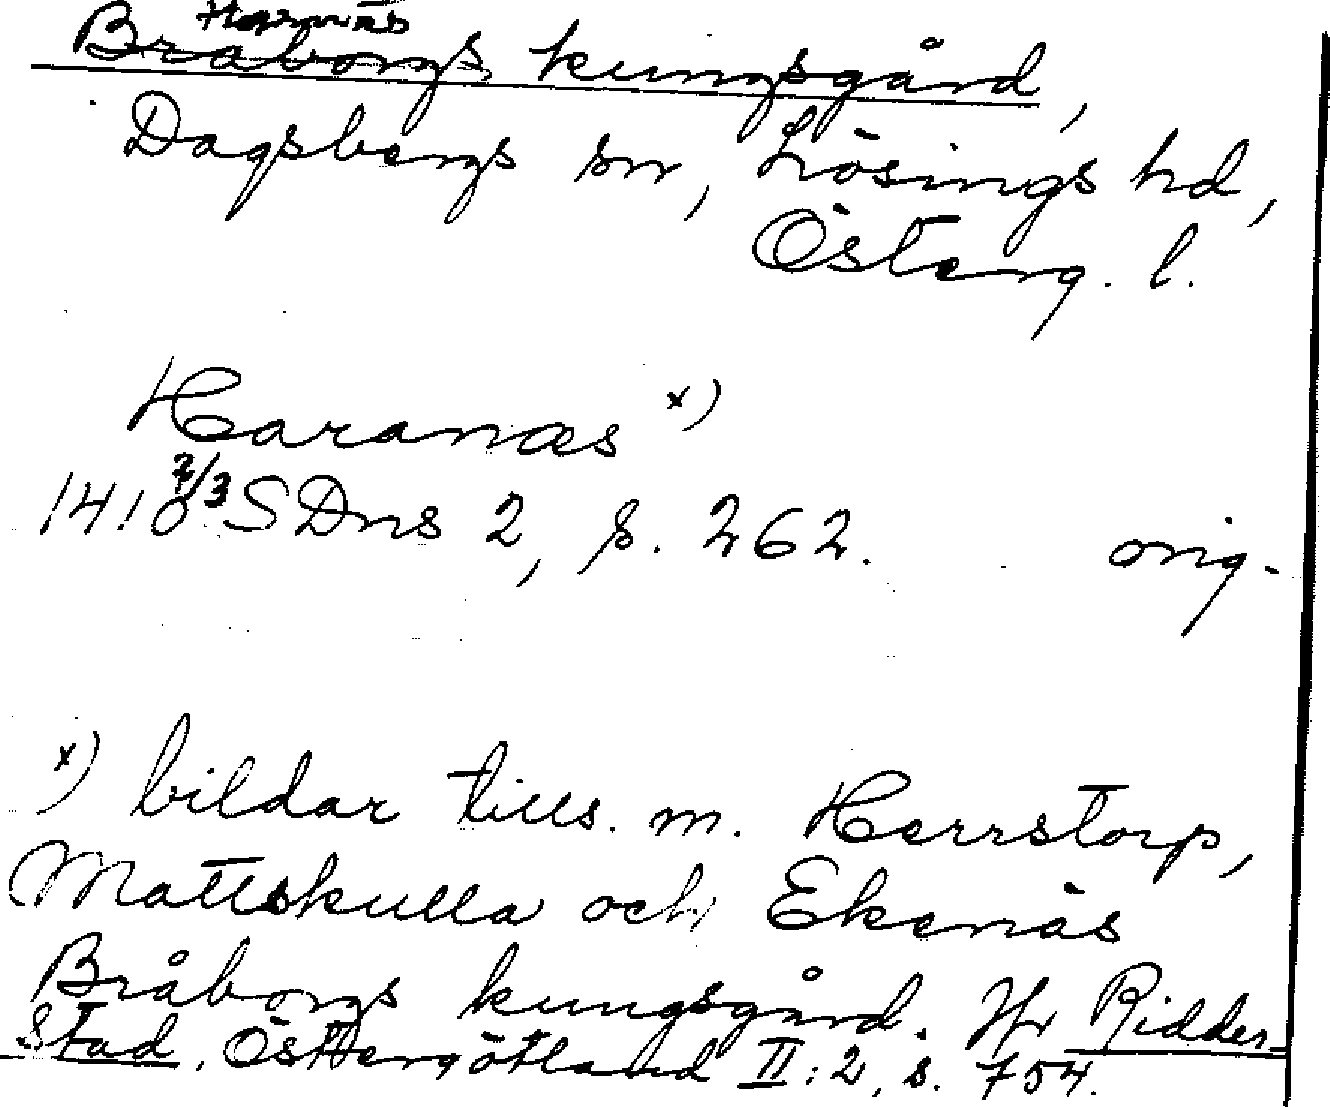 Hernäs
Bråborgs kungsgård,
Dagsbergs sn, Lösings hd,
Österg. l.
Haranæs x)
1410 7/3 SDns 2, s. 262. orig.
x) bildar tills. m. Herrstorp,
Mattskulla och Ekenäs
Bråborgs kungsgård. Hr Ridder-
stad, Östergötland II:2, s. 754.